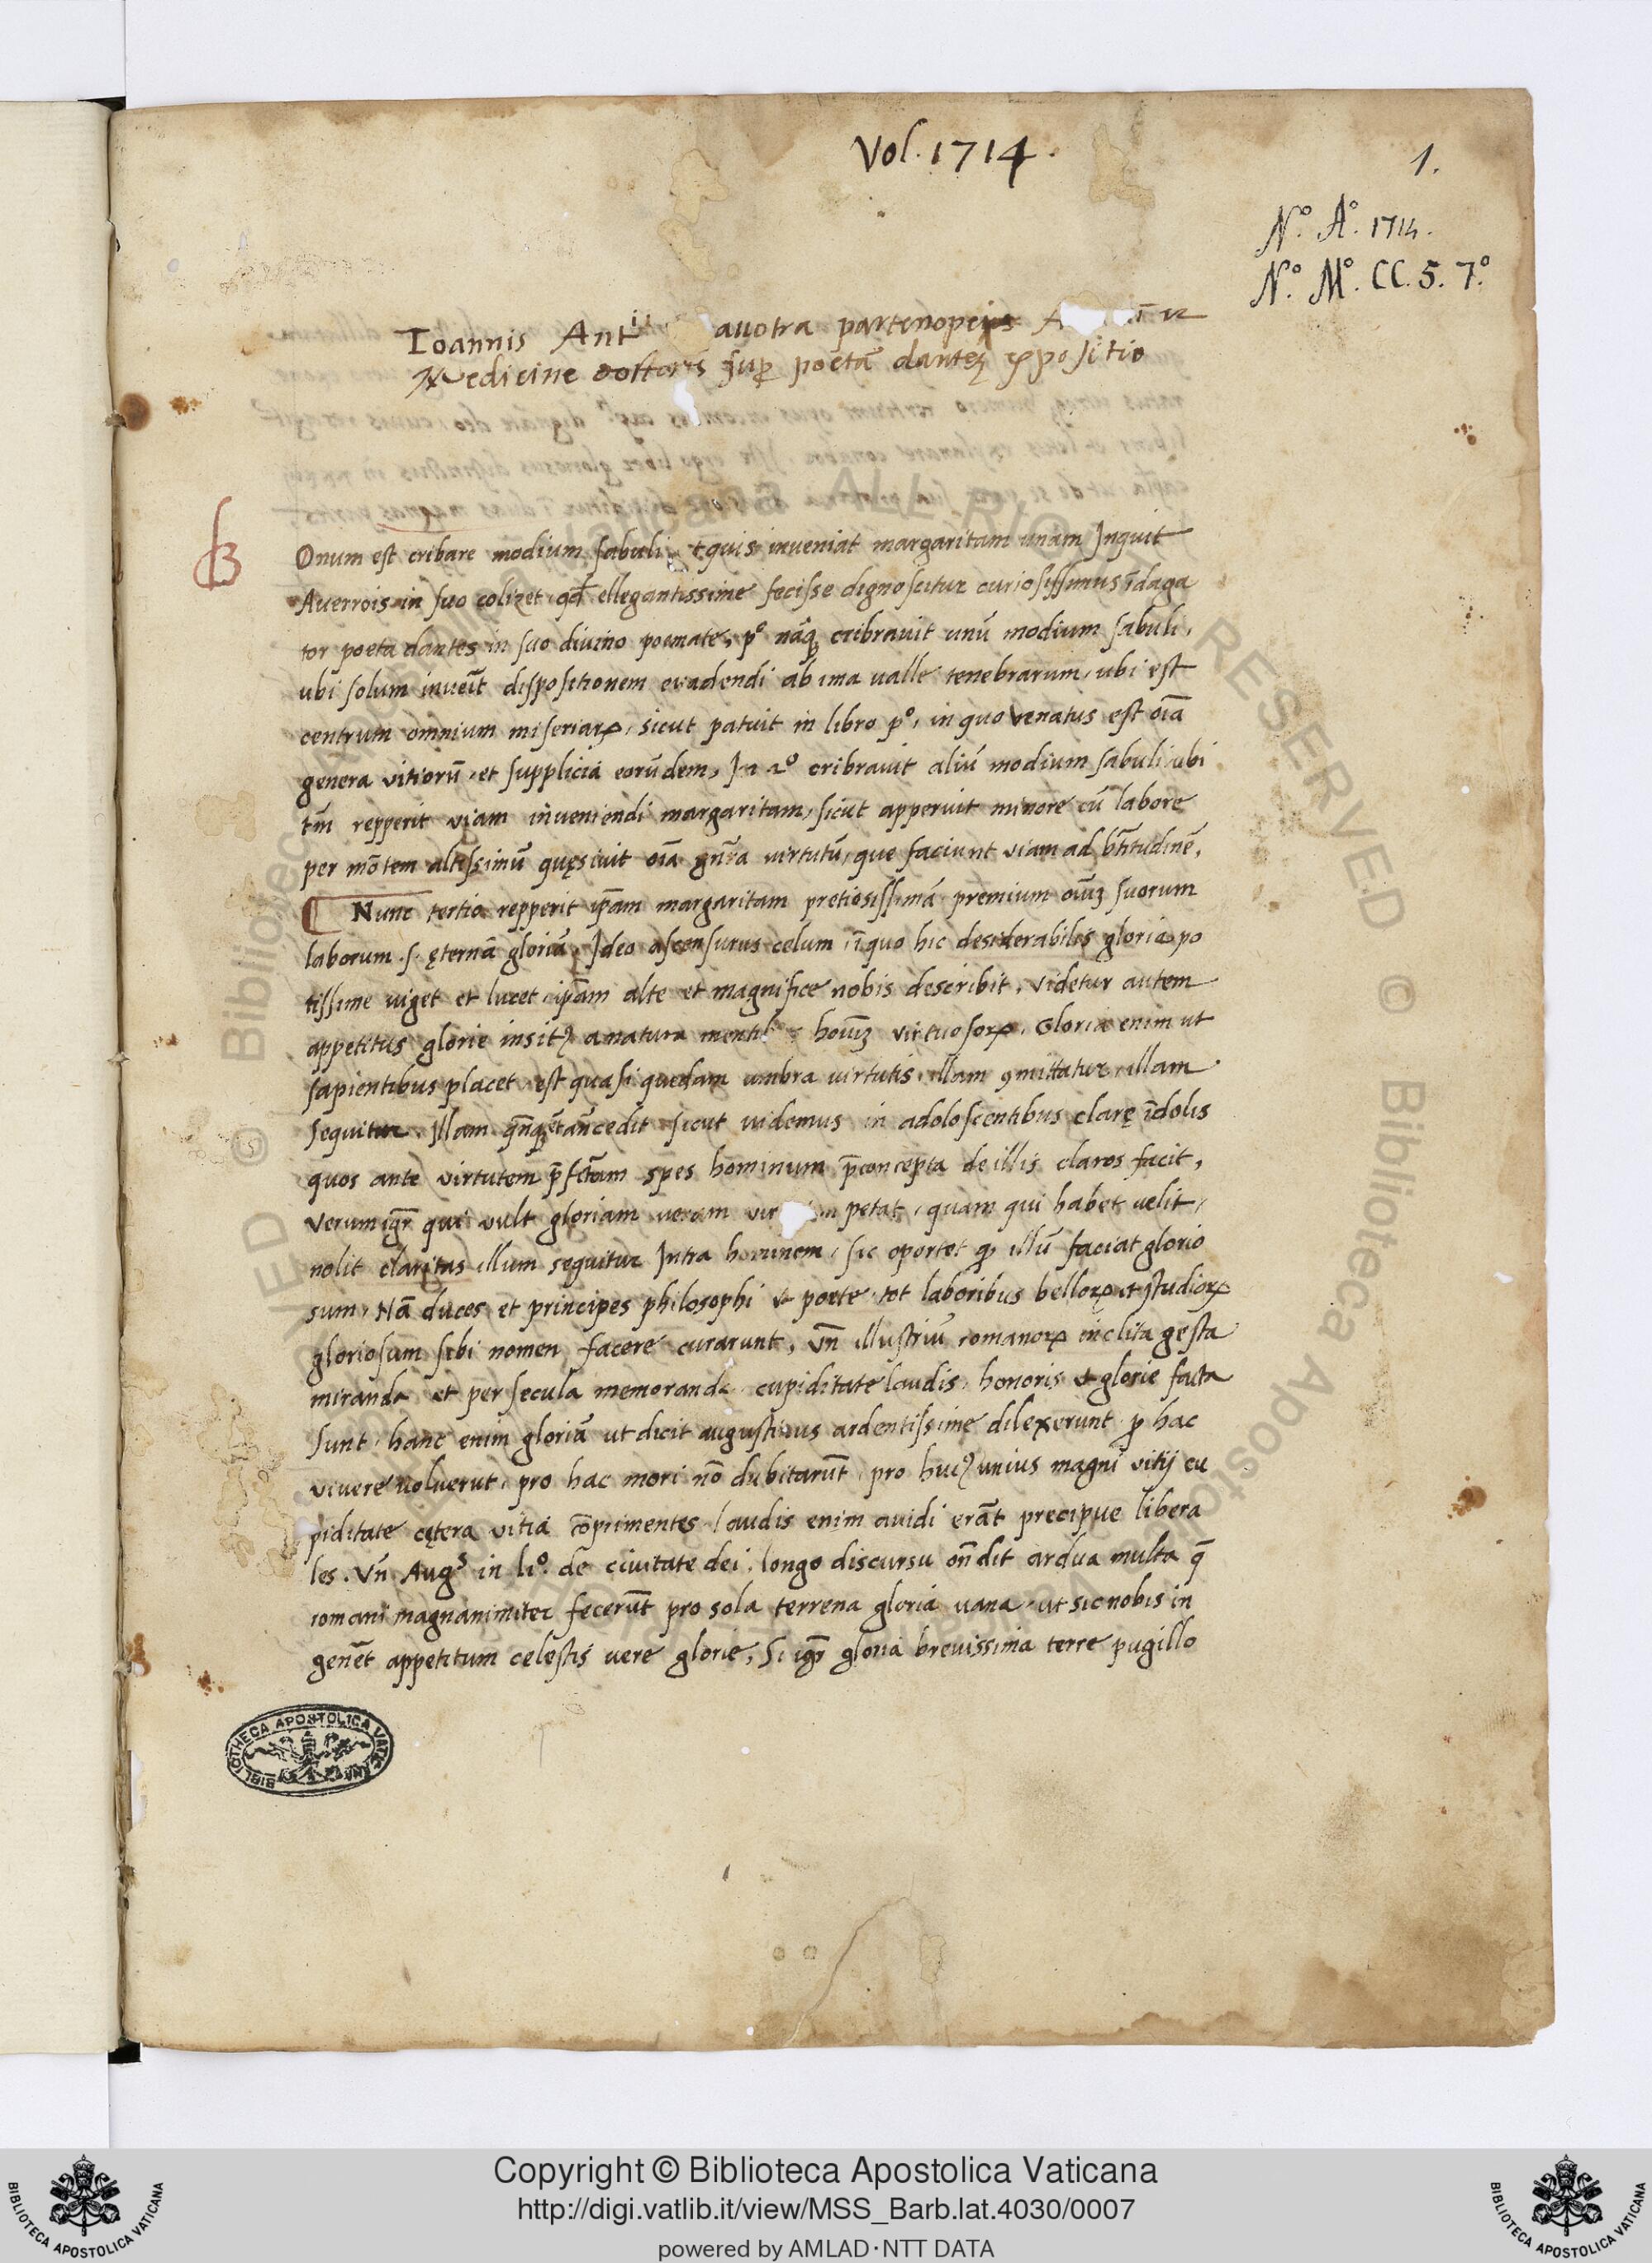 Vol. 1714.
1.
N.º A.º 1714.
N.º M.º CC. 5. 7.º
Ioannis Ant.ii auotra partenopeis
Medicine doctoris sup poetã dantez expositio
B
Onum est cribare modium sabuli, ut quis inveniat margaritam unam Inquit
Averrois in suo colizet qd ellegantissime fecisse dignoscitur curiosissimus īdaga
tor poeta dantes in suo divino poemate, pº nãq cribravit unũ modium sabuli,
ubi solum inveīt dispositionem evadendi ab ima valle tenebrarum, ubi est
centrum omnium miseriarꝝ, sicut patuit in libro pº, in quo venatus est oīa
genera vitiorũ et supplicia eorũdem, In 2º cribravit aliũ modium sabuli ubi
tm̃ repperit viam inveniendi margaritam, sicut apperuit minore cũ labore
per mõtem altissimũ quęsivit oīa gñra virtutũ, que faciunt viam ad btĩtudinẽ,
Nunc tertio repperit ip̃am margaritam pretiosissimã premium oiũz suorum
laborum .s. ęternã gloriã, Ideo ascensurus celum, ī quo hic desiderabilis gloria po
tissime viget et lucet, ip̃am alte et magnifice nobis describit, videtur autem
appetitus glorie insitꝫ a natura hoiũz virtuosorꝝ, Gloria enim ut
sapientibus placet est quasi quedam umbra virtutis, illam ꝯmittatur, illam
sequitur, Illam sicut videmus in adoloscentibus clarę īdolis
quos ante virtutem p̃fctam spes hominum p̃concepta de illis claros facit,
Verum igr̃ qui vult gloriam veram petat, quam qui habet velit,
nolit claritas illum sequitur Intra hominem, sic oportet illũ faciat glorio
sum, Nã duces et principes philosophi et poete tot laboribus bellorꝝ et studiorꝝ
gloriosum sibi nomen facere curarunt, Vñ illustriũ romanorꝝ inclita gesta
miranda et per secula memoranda cupiditate laudis, honoris et glorie facta
sunt, hanc enim gloriã ut dicit augustinus ardentissime dilexerunt p hac
vivere voluerũt, pro hac mori nõ dubitarũt, pro unius magni vitij cu
piditate cętera vitia cõprimentes laudis enim avidi erãt precipue libera
les. Vñ Augs in liº. de civitate dei, longo discursu oñdit ardua multa q̃
romani magnanimiter fecerũt pro sola terrena gloria vana, ut sic nobis in
genẽt appetitum celestis vere glorie, Si igr̃ gloria brevissima terre pugillo
BIBLIOTHECA APOSTOLICA VATICANA
© Biblioteca Apostolica Vaticana ALL RIGHTS RESERVED © Biblioteca Apostolica Vaticana ALL RIGHTS RESERVED
BIBLIOTECA APOSTOLICA VATICANA
Copyright © Biblioteca Apostolica Vaticana
http://digi.vatlib.it/view/MSS_Barb.lat.4030/0007
powered by AMLAD·NTT DATA
BIBLIOTECA APOSTOLICA VATICANA